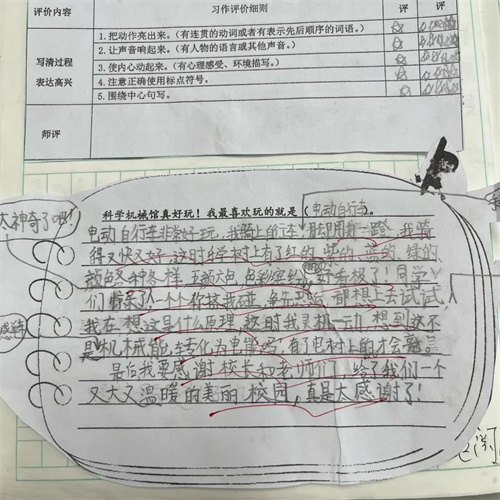 评价内容 习作评价细则 评 评
1.把动作亮出来。(有连贯的动词或者有表示先后顺序的词语。)
2.让声音响起来。(有人物的语言或其他声音。)
写清过程
3.使内心动起来。(有心理感受、环境描写。)
表达高兴
4.注意正确使用标点符号。
5.围绕中心句写。
师评
太神奇了吧!
科学机械馆真好玩!我最喜欢玩的就是(电动自行车)。
电动自行车非常好玩,我骑上自行车,脚用力一蹬,我骑
得又快又好,这时候树上有了红的、紫的、蓝的、绿的
颜色各种各样,五颜六色,色彩缤纷,好看极了!同学
们 一个个你挤我碰,争先恐后,都想上去试试,
我在想这是什么原理,这时我灵机一动,想到这不
是机械能转化为电能吗!有了电树上的才会亮。
最后我要感谢校长和老师们,给了我们一个
又大又温暖的美丽校园,真是太感谢了!